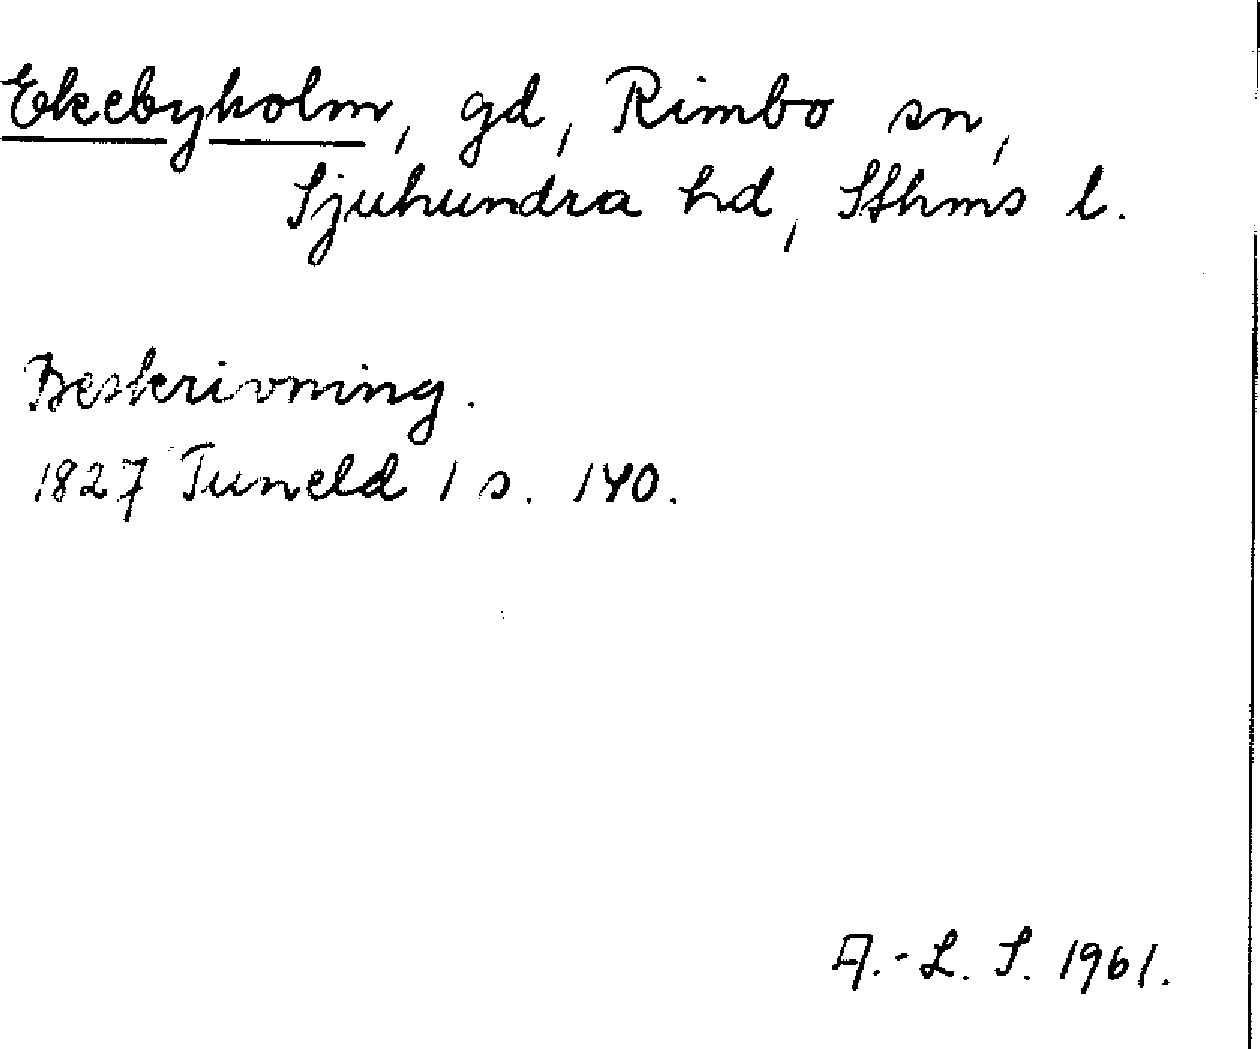 Ekebyholm, gd, Rimbo sn,
Sjuhundra hd, Sthms l.
Beskrivning.
1827 Tuneld 1 s. 140.
A.-L. S. 1961.